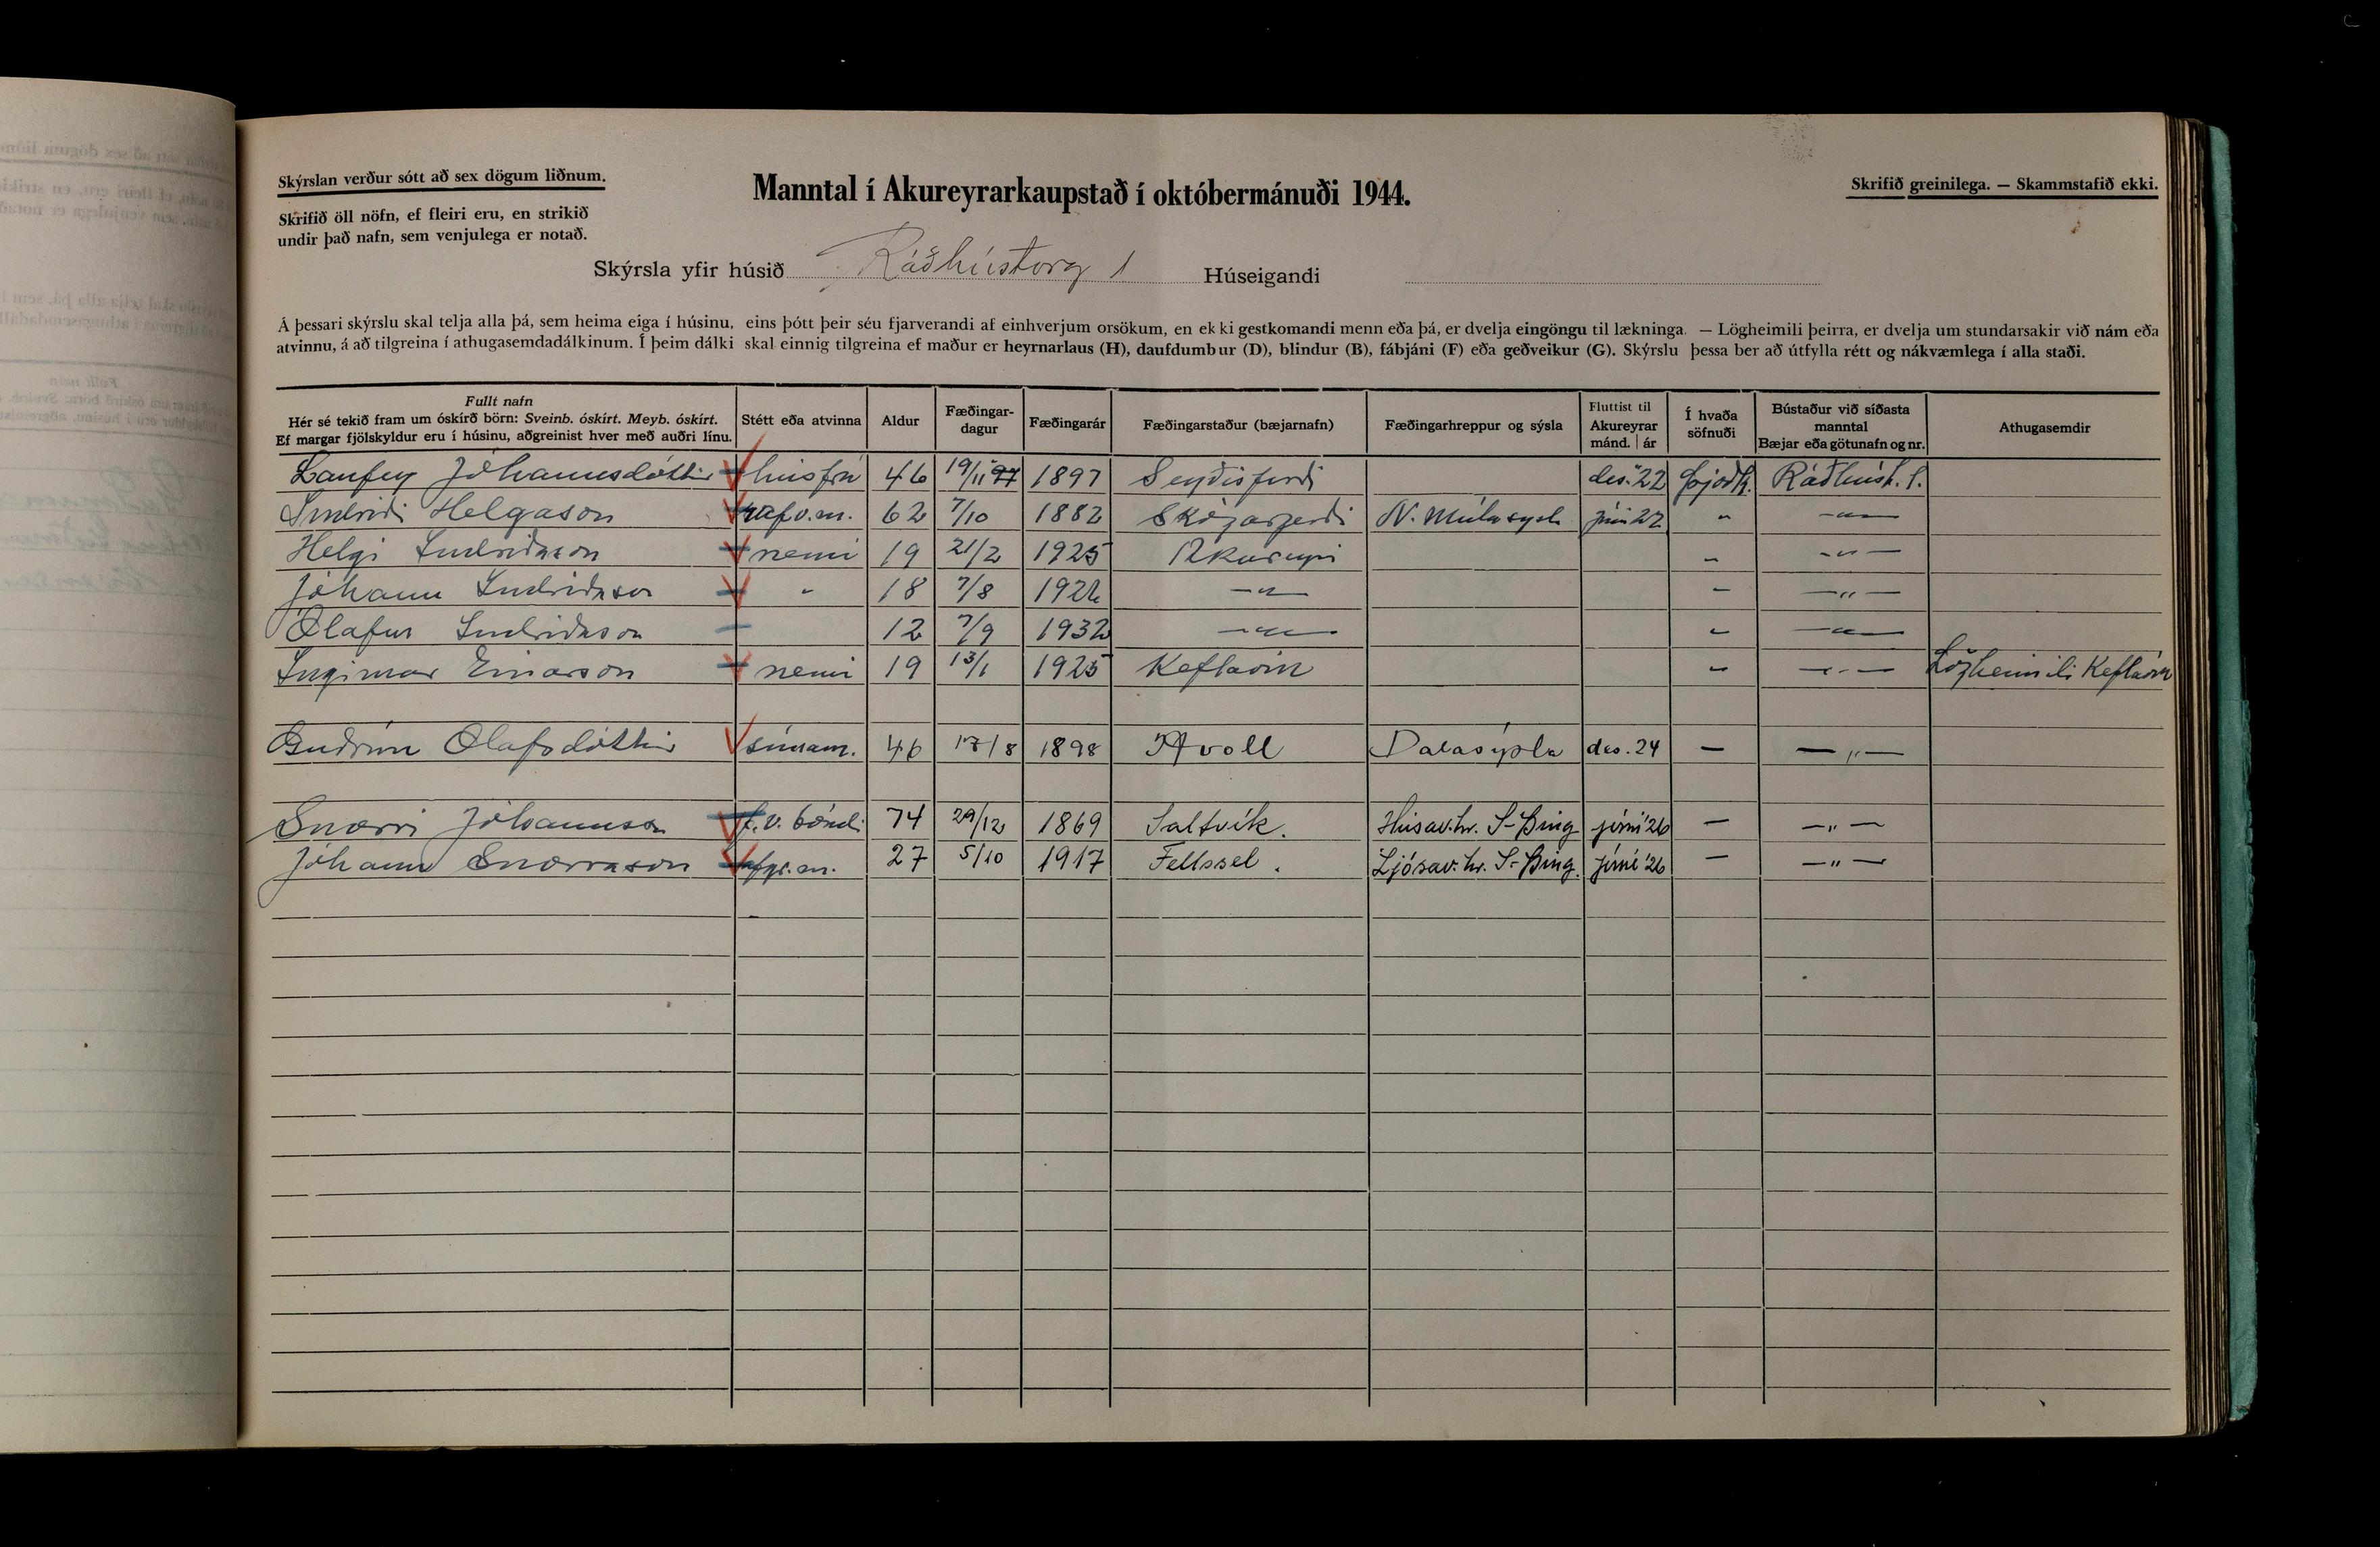 Skýrslan verður sótt að sex dögum liðnum.
Manntal í Akureyrarkaupstað í októbermánuði 1944.
Skrifið greinilega. — Skammstafið ekki.
Skrifið öll nöfn, ef fleiri eru, en strikið
undir það nafn, sem venjulega er notað.
Skýrsla yfir húsið Ráðhústorg 1 Húseigandi
Á þessari skýrslu skal telja alla þá, sem heima eiga í húsinu, eins þótt þeir séu fjarverandi af einhverjum orsökum, en ekki gestkomandi menn eða þá, er dvelja eingöngu til lækninga. — Lögheimili þeirra, er dvelja um stundarsakir við nám eða
atvinnu, á að tilgreina í athugasemdadálkinum. Í þeim dálki skal einnig tilgreina ef maður er heyrnarlaus (H), daufdumbur (D), blindur (B), fábjáni (F) eða geðveikur (G). Skýrslu þessa ber að útfylla rétt og nákvæmlega í alla staði.
Fullt nafn
Hér sé tekið fram um óskírð börn: Sveinb. óskírt. Meyb. óskírt.
Ef margar fjölskyldur eru í húsinu, aðgreinist hver með auðri línu.
Stétt eða atvinna
Aldur
Fæðingar-
dagur
Fæðingarár
Fæðingarstaður (bæjarnafn)
Fæðingarhreppur og sýsla
Fluttist til
Akureyrar
mánd. | ár
Í hvaða
söfnuði
Bústaður við síðasta
manntal
Bæjar eða götunafn og nr.
Athugasemdir
Laufey Jóhannsdóttir húsfrú 46 19/11 97 1897 Seyðisfirði des. 22 þjóðk. Ráðhúst. 1.
Indriði Helgason rafv.m. 62 7/10 1882 Skógargerði N. Múlasýsla júní 22 " — " —
Helgi Indriðason nemi 19 21/2 1925 Akureyri " — " —
Jóhann Indriðason " 18 7/8 1926 — " — " — " —
Ólafur Indriðason 12 7/9 1932 — " — " — " —
Ingimar Einarson nemi 19 13/1 1925 Keflavík " — " — Lögheimili Keflavík
Guðrún Ólafsdóttir símam. 46 17/8 1898 Hvoll Dalasýsla des. 24 — — " —
Snorri Jóhannsson f.v. bóndi 74 29/12 1869 Saltvík. Húsav.hr. S-Þing júní '26 — — " —
Jóhann Snorrason afgr.m. 27 5/10 1917 Fellssel. Ljósav.hr. S-Þing. júní '26 — — " —